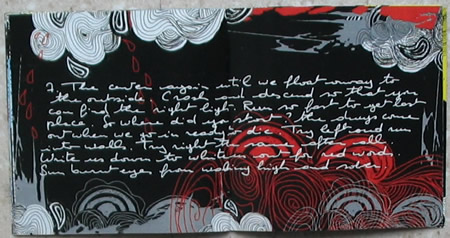 7. The center rages until we float away to
the outside. Crash and descend so that you
can find the right light. Run so fast to get lost
place. So where did you start the drugs come
on when we were in ready to die. Try left and run
into walls. Try right to
Write us down to white out for red words
Sun burnt eyes from waking high and sober